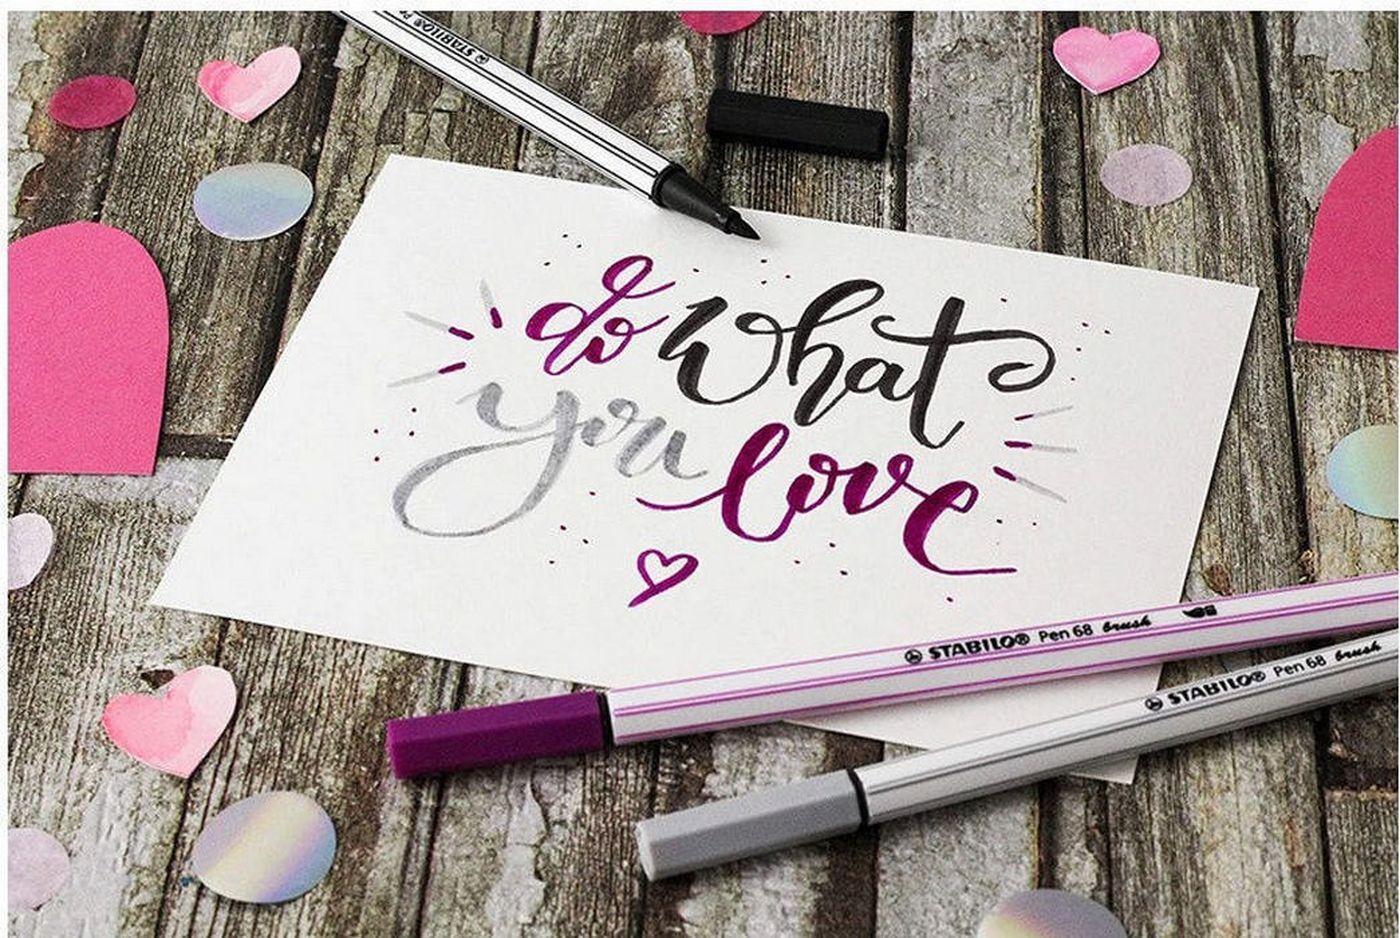 STABILO® Pe
do what
you love
STABILO® Pen 68 brush
STABILO® Pen 68 brush